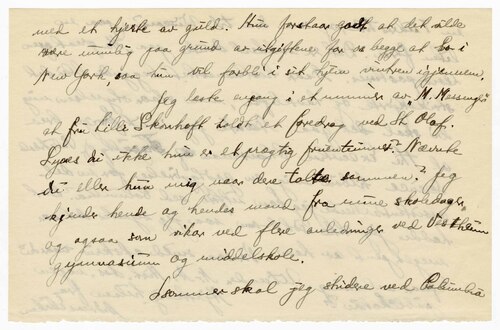 med et hjerte av guld. Hun forstaar godt at det vilde
være umulig paa grund av utgiftene for os begge at bo i
New York, saa hun vil forbli i sit hjem vintren igjennem.
Jeg læste engang i et nummer av „M. Messenger"
at fru Lilli Skonhoft holdt et foredrag ved St. Olaf.
Synes du ikke hun er et prægtig fruentimmer? Nævnte
du eller hun mig naar dere talte sammen? Jeg
kjender hende og hendes mand fra mine skoledager,
og ogsaa som vikar ved flere anledninger ved Vestheim
gymnasium og middelskole.
I sommer skal jeg studere ved Columbia